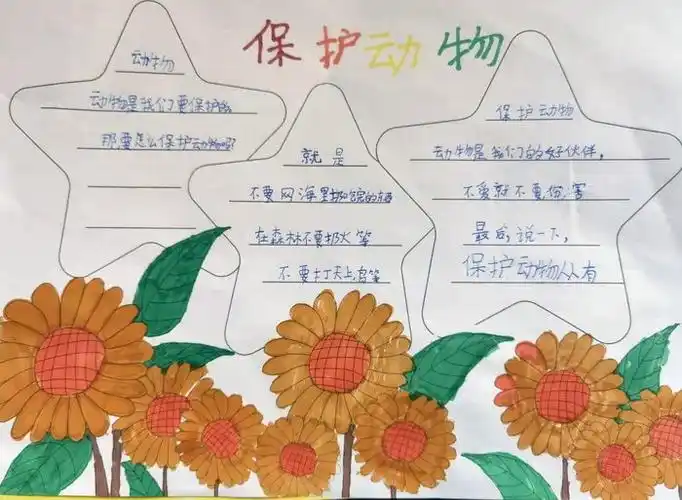 保护动物
动物
动物是我们要保护的
那要怎么保护动物呢
就是
不要网海里扔的东西
在森林不要扔火等
不要打天上鸟等
保护动物
动物是我们的好伙伴，
不爱就不要伤害
最后，说一下，
保护动物人人有